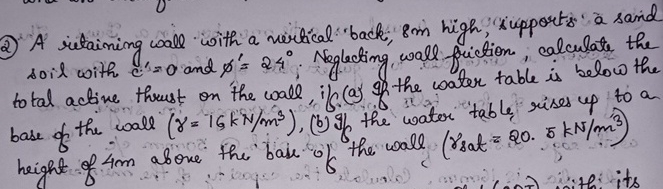 ② A retaining wall with a vertical back, 8m high, supports a sand
soil with c'=0 and ø'= 24°. Neglecting wall friction, calculate the
total active thrust on the wall, if (a) If the water table is below the
base of the wall (γ = 15 kN/m³), (b) If the water table rises up to a
height of 4m above the base of the wall (γsat = 20. 5 kN/m³)
its